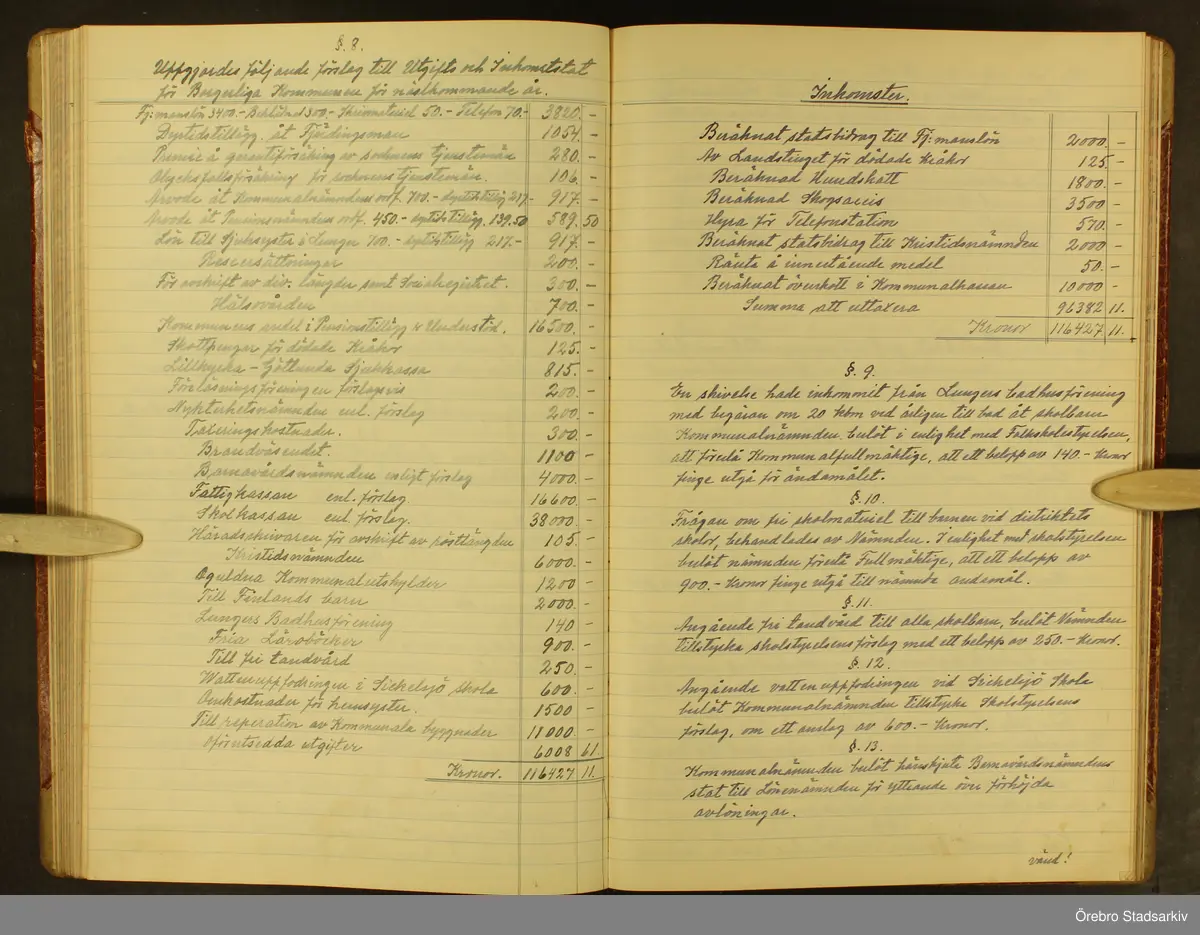 §. 8.
Uppgjordes följande förslag till Utgifts och Inkomststat
för Borgerliga Kommunen för nästkommande år.
Fj:manslön 3400.- Beklädnad 300.- Skrivmateriel 50.- Telefon 70.- 3820. -
Dyrtidstillägg åt Fjärdingsman 1054. -
Premie å garantiförsäkring av socknens tjenstemän 280. -
Olycksfallsförsäkring för socknens tjenstemän. 106. -
Arvode åt Kommunalnämndens ordf. 700.- dyrtidstillägg 217.- 917. -
Arvode åt Pensionsnämndens ordf. 450.- dyrtidstillägg. 139.50 589. 50
Lön till Sjuksyster i Lunger 700.- dyrtidstillägg 217.- 917. -
Reseersättningar 200. -
För avskrift av div. längder samt Socialregistret. 300. -
Hälsovården 700. -
Kommunens andel i Pensionstillägg & Understöd. 16500. -
Skottpengar för dödade Kråkor 125. -
Lillkyrka - Götlunda Sjukkassa 815. -
Föreläsningsföreningen förslagsvis 200. -
Nykterhetsnämnden enl. förslag 200. -
Taxeringskostnader. 300. -
Brandväsendet. 1100 -
Barnavårdsnämnden enligt förslag 4000. -
Fattigkassan enl. förslag 16600. -
Skolkassan enl. förslag. 38000. -
Häradsskrivaren för avskrift av röstlängden 105. -
Kristidsnämnden 6000. -
Oguldna Kommunalutskylder 1200 -
Till Finlands barn 2000. -
Lungers Badhusförening 140 -
Fria Läroböcker 900. -
Till fri tandvård 250. -
Wattenuppfodringen i Sickelsjö skola 600. -
Omkostnader för hemsyster. 1500 -
Till reperation av Kommunala byggnader 11000. -
Oförutsedda utgifter 6008 61.
Kronor. 116427 11.
Inkomster.
Beräknat statsbidrag till Fj:manslön 2000. -
Av Landstinget för dödade Kråkor 125 -
Beräknad Hundskatt 1800. -
Beräknad Skogsaccis 3500 -
Hyra för Telefonstation 570. -
Beräknat statsbidrag till Kristidsnämnden 2000 -
Ränta å innestående medel 50. -
Beräknat överskott i Kommunalkassan 10000 -
Summa att uttaxera 96382 11.
Kronor 116427 11.
§. 9.
En skivelse hade inkommit från Lungers badhusförening
med begäran om 20 kbm ved årligen till bad åt skolbarn
Kommunalnämnden beslöt i enlighet med Folkskolestyrelsen,
att föreslå Kommunalfullmäktige, att ett belopp av 140.- Kronor
finge utgå för ändamålet.
§. 10.
Frågan om fri skolmateriel till barnen vid distriktets
skolor, behandlades av Nämnden. I enlighet med skolstyrelsen
beslöt nämnden föreslå Fullmäktige, att ett belopp av
900.- Kronor finge utgå till nämnda andemål.
§. 11.
Angående fri tandvård till alla skolbarn, beslöt Nämnden
tillstyrka skolstyrelsens förslag med ett belopp av 250.- Kronor.
§. 12.
Angående vattenuppfodringen vid Sickelsjö Skola
beslöt Kommunalnämnden tillstyrka Skolstyrelsens
förslag, om ett anslag av 600.- Kronor.
§. 13.
Kommunalnämnden beslöt hänskjuta Barnavårdsnämndens
stat till Lönenämnden för yttrande över förhöjda
avlöningar.
vänd!
Örebro Stadsarkiv